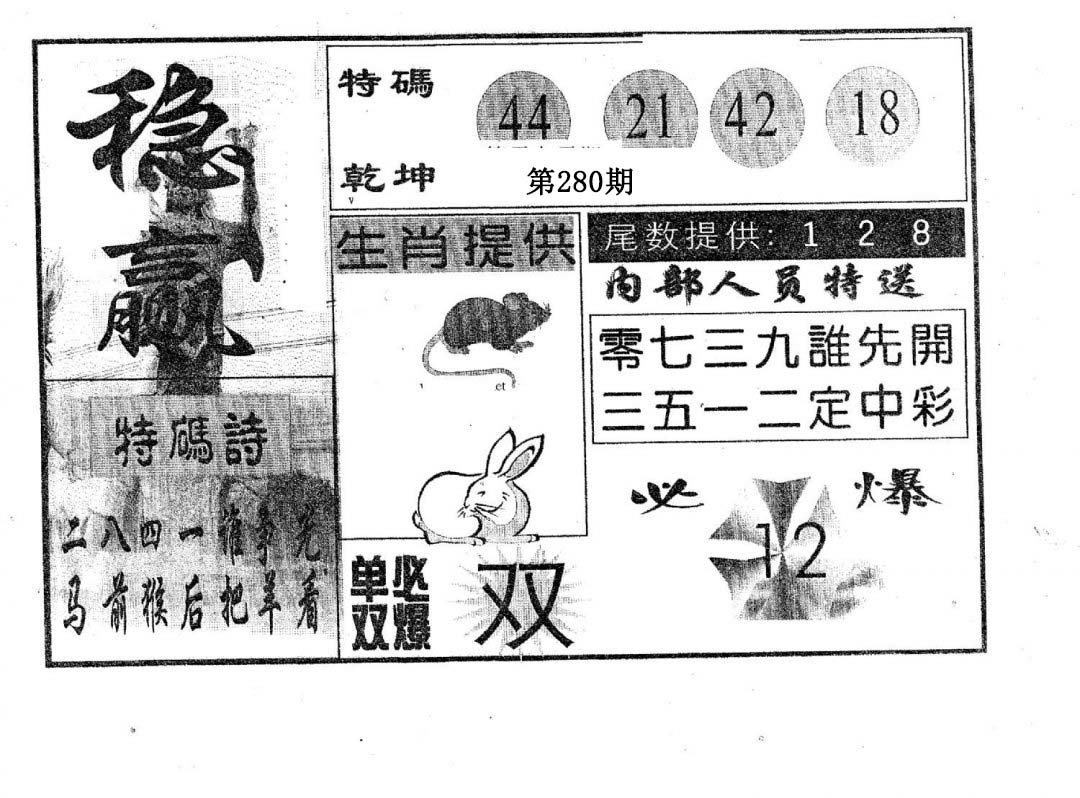 稳赢
特碼詩
二八四一誰爭先
马前猴后把羊看
特碼
44 21 42 18
乾坤
第280期
生肖提供
et
尾数提供: 1 2 8
内部人员特送
零七三九誰先開
三五一二定中彩
必爆
12
单双必爆
双